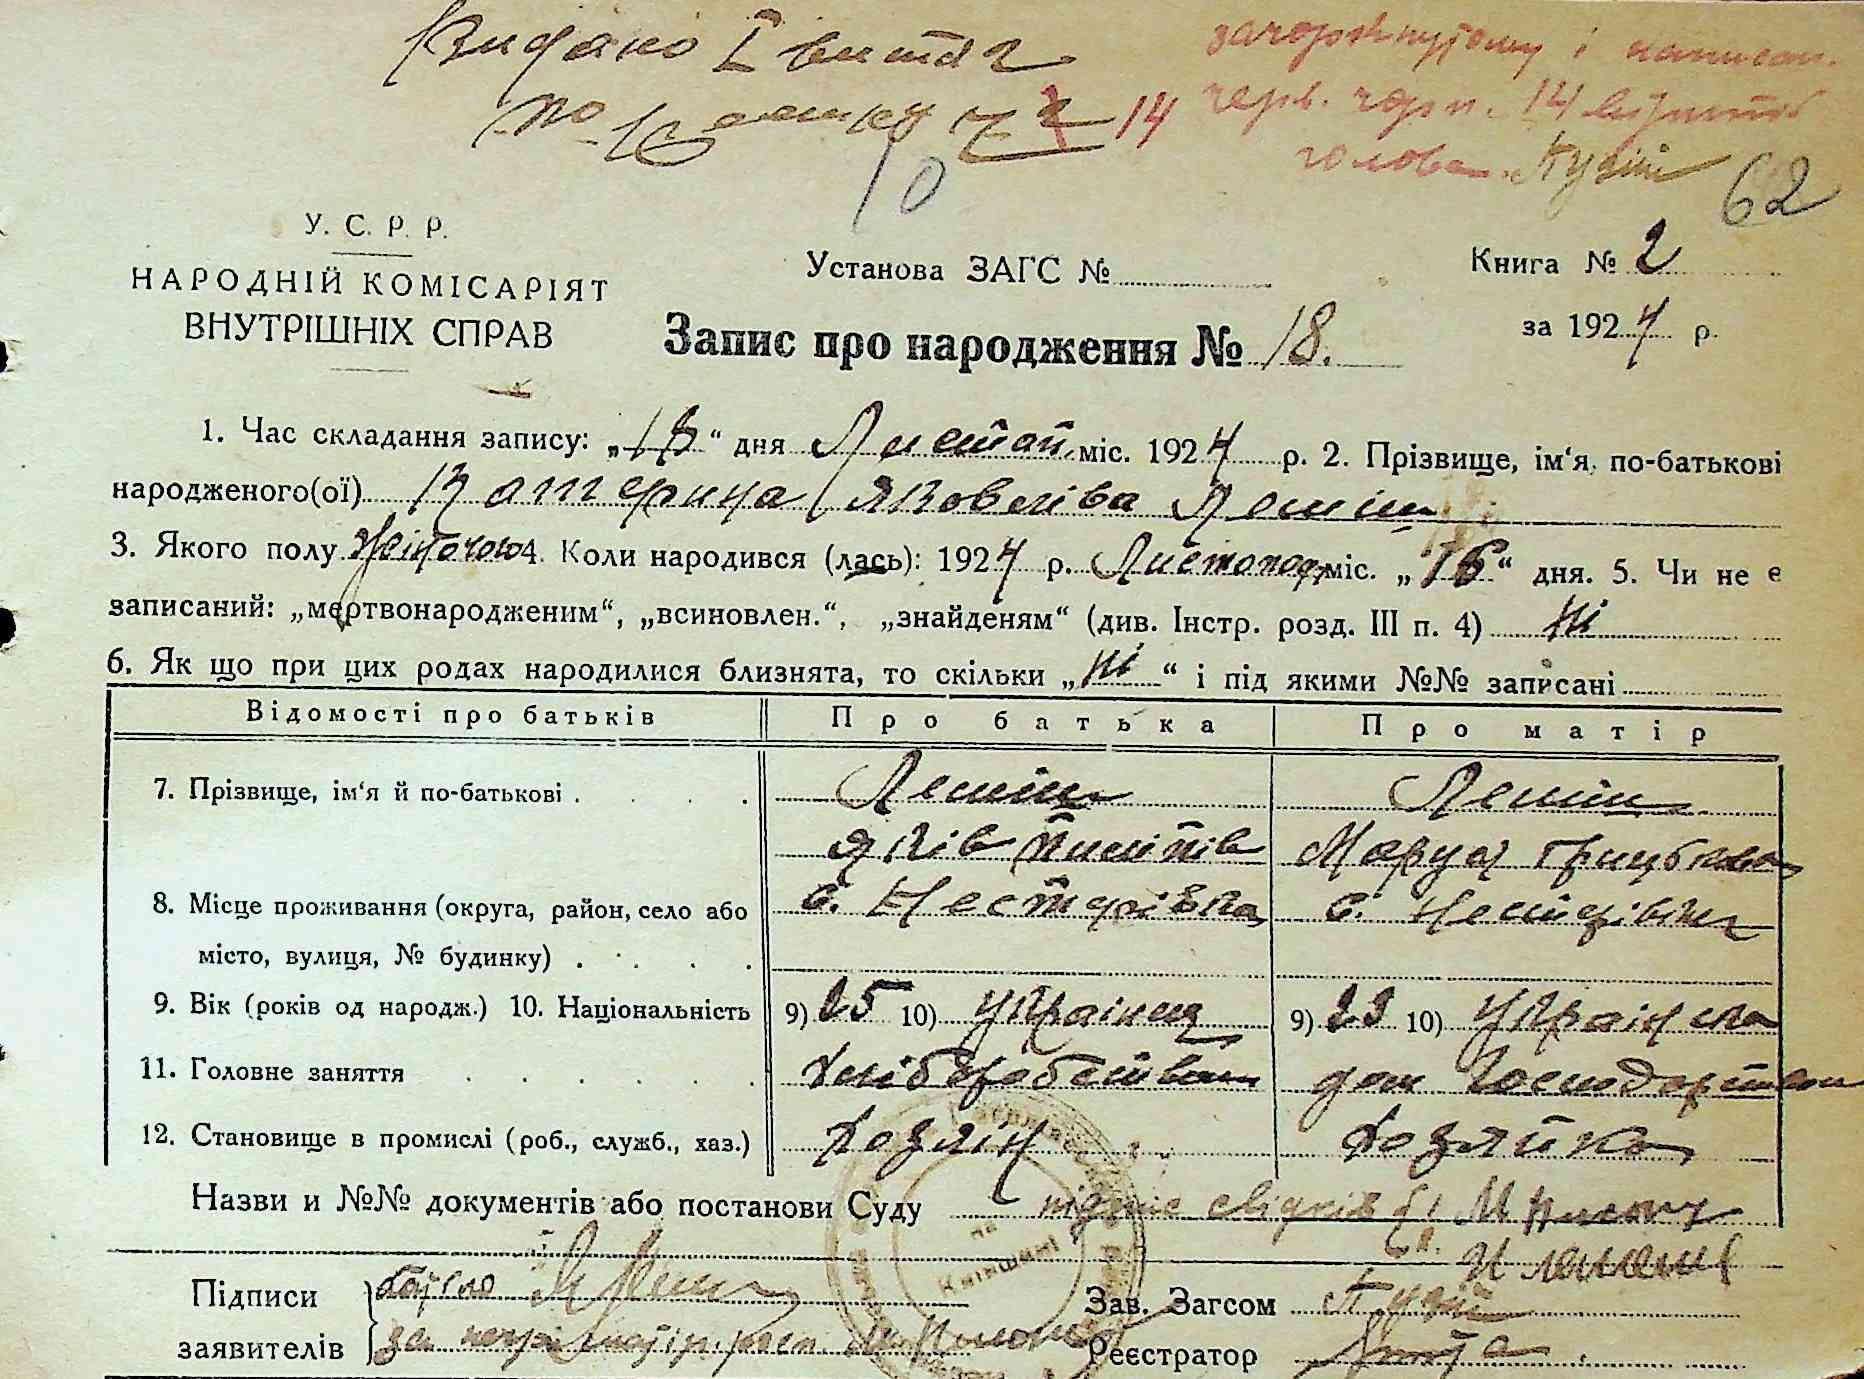 Видано І
14
зачоркнутому і написан.
черв. черн. 14
голова
10
62
У. С. Р. Р.
НАРОДНІЙ КОМІСАРІЯТ
ВНУТРІШНІХ СПРАВ
Установа ЗАГС №
Книга № 2
за 1924 р.
Запис про народження № 18.
1. Час складання запису: „18“ дня Листоп. міс. 1924 р. 2. Прізвище, ім‘я, по-батькові
народженого(ої) Катерина Яковліва
3. Якого полу жіночого 4. Коли народився (лась): 1924 р. Листопад міс. „16“ дня. 5. Чи не є
записаний: „мертвонародженим“, „всиновлен.“, „знайденям“ (див. Інстр. розд. III п. 4) Ні
6. Як що при цих родах народилися близнята, то скільки „ні“ і під якими №№ записані
Відомості про батьків
Про батька
Про матір
7. Прізвище, ім‘я й по-батькові
Яків
Маруся
8. Місце проживання (округа, район, село або
місто, вулиця, № будинку)
с. Нестерівка
с. Нестерівка
9. Вік (років од народж.) 10. Національність
9) 25 10) Українец
9) 23 10) Українка
11. Головне заняття
хліборобством
дом господарством
12. Становище в промислі (роб., служб., хаз.)
Хозяїн
Хозяйка
Назви и №№ документів або постанови Суду
підпис свідків
Підписи
заявителів
батько
Зав. Загсом
Реєстратор